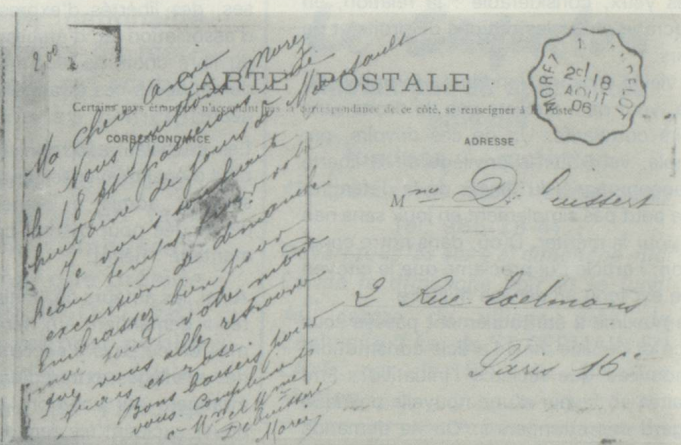 2,00
CARTE POSTALE
Certains pays étrangers n'acceptant pas de correspondance de ce côté, se renseigner à la Poste
CORRESPONDANCE
ADRESSE
MOREZ
18
AOUT
06
Ma chère amie
Nous quittons Morez
le 18 et passerons une
huitaine de jours à
Je vous souhaite
beau temps pour votre
excursion de dimanche
Embrassez bien pour
moi tout votre monde
que vous allez retrouver
frais et rose.
Bons baisers pour
vous. Compliments
à M. et Mme
Morez
Mme D.
2 Rue Exelmans
Paris 16e